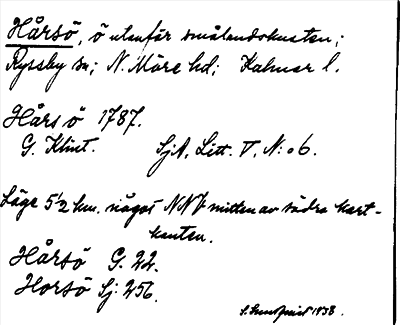 Hårsö, ö utanför smålandskusten;
Ryssby sn; N. Möre hd; Kalmar l.
Hårsö 1787.
G. Klint. SjA, Litt. V, N:o 6.
Läge 5½ km. något NNV mitten av södra kart-
kanten.
Hårsö G. 22.
Horsö Sj: 256.
1938.